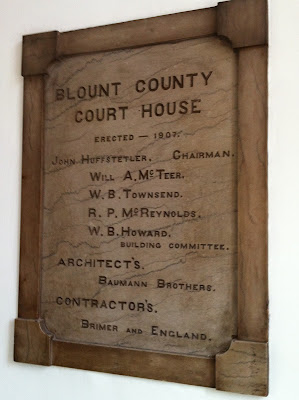 BLOUNT COUNTY
COURT HOUSE
ERECTED — 1907.
JOHN HUFFSTETLER. CHAIRMAN.
WILL A. McTEER.
W. B. TOWNSEND.
R. P. McREYNOLDS.
W. B. HOWARD.
BUILDING COMMITTEE.
ARCHITECT'S.
BAUMANN BROTHERS.
CONTRACTOR'S.
BRIMER AND ENGLAND.